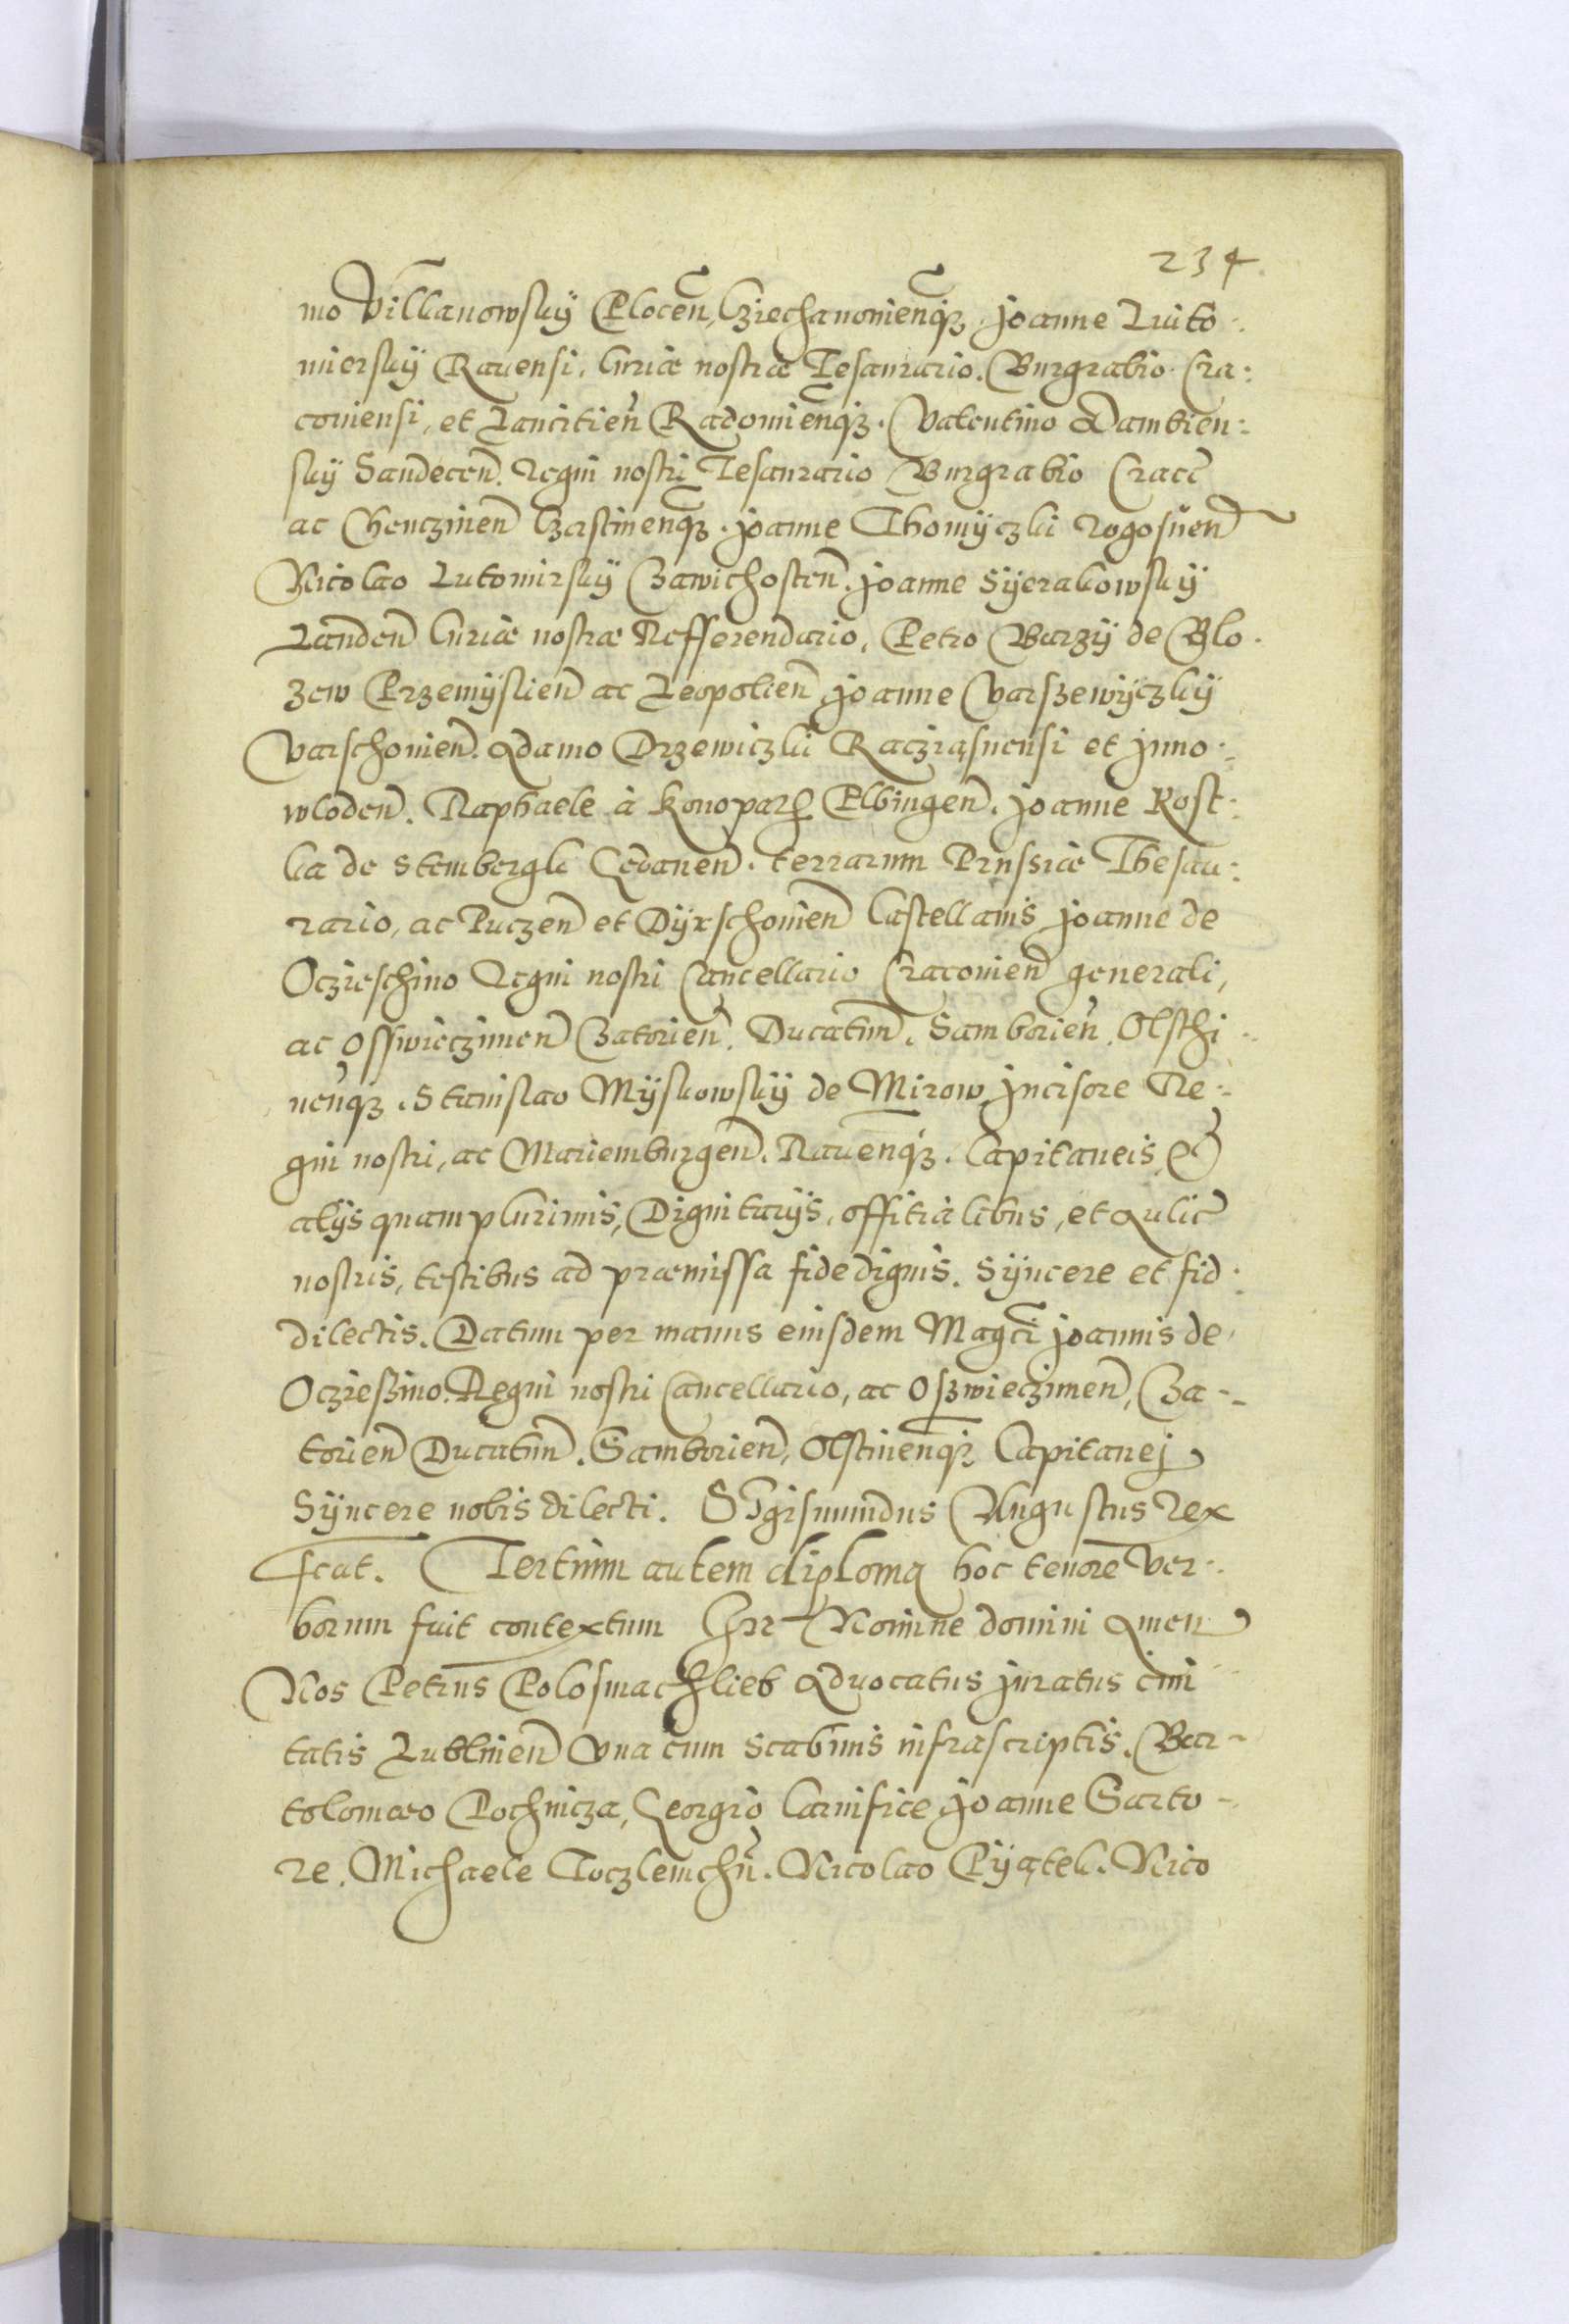 234
mo Villanowskÿ Plocen̄, Cziechanoviēnq₃. Joanne Luto-
mierskÿ Ravensi, Curiæ nostræ Tesaurario. Burgrabio Cra:
coviensi, et Lancitień Radomiēnq₃. Valentino Dambień:
skÿ Sandecen̄. Regni nostri Tesaurario Burgrabio Crac̄
ac Chenczinen̄ Czastinēnq₃. Joanne Thomÿczki Rogosnen̄
Nicolao Lutomirskÿ Zawichosten̄. Joanne Sÿerakowskÿ
Landen̄ Curiæ nostræ Refferendario, Petro Barzÿ de Blo-
zew Przemÿslien̄ ac Leopolien̄ Joanne Varszewÿczkÿ
Varschovien̄. Adamo Drzewiczki Racziąsnensi et Jnno-
wloden̄. Raphaele à Konopath Elbingen̄. Joanne Kost-
ka de Stembergk Gedanen̄. terrarum Prussiæ Thesau:
rario, ac Puczen̄ et Dÿrschovien̄ Castellanis, Joanne de
Oczieschino Regni nostri Cancellario Cracovien̄ generali,
ac Osswieczimen̄ Zatorien̄. Ducatuum. Samborień. Olschi-
neńq₃. Stanislao Mÿskowskÿ de Mirow Jncisore Re-
gni nostri, ac Mariemburgen̄. Ravēnq₃. Capitaneis, et
alÿs quam plurimis, Dignitarÿs, offitialibus, et Aulic̄
nostris, testibus ad præmissa fide dignis. Sÿncere et fid:
dilectis. Datum per manus eiusdem Magc̄i Joannis de
Oczieszino. Regni nostri Cancellario, ac Oszwieczimen̄, Za-
torien̄ Ducatuum. Samborien̄, Olstinēnq₃ Capitanej
Sÿncere nobis dilecti. Sigismundus Augustus Rex
scat. Tertium autem diploma hoc tenorē ver-
borum fuit contextum Jn Nomine domini Amen
Nos Petrus Polosmachlieb Advocatus Juratus civi
tatis Lublinen̄ Una cum Scabinis infrascriptis. Bar-
tolomæo Pochnicza, Georgio Carnifice Joanne Sarto-
re. Michaele Toczlemchń. Nicolao Pÿątek. Nico